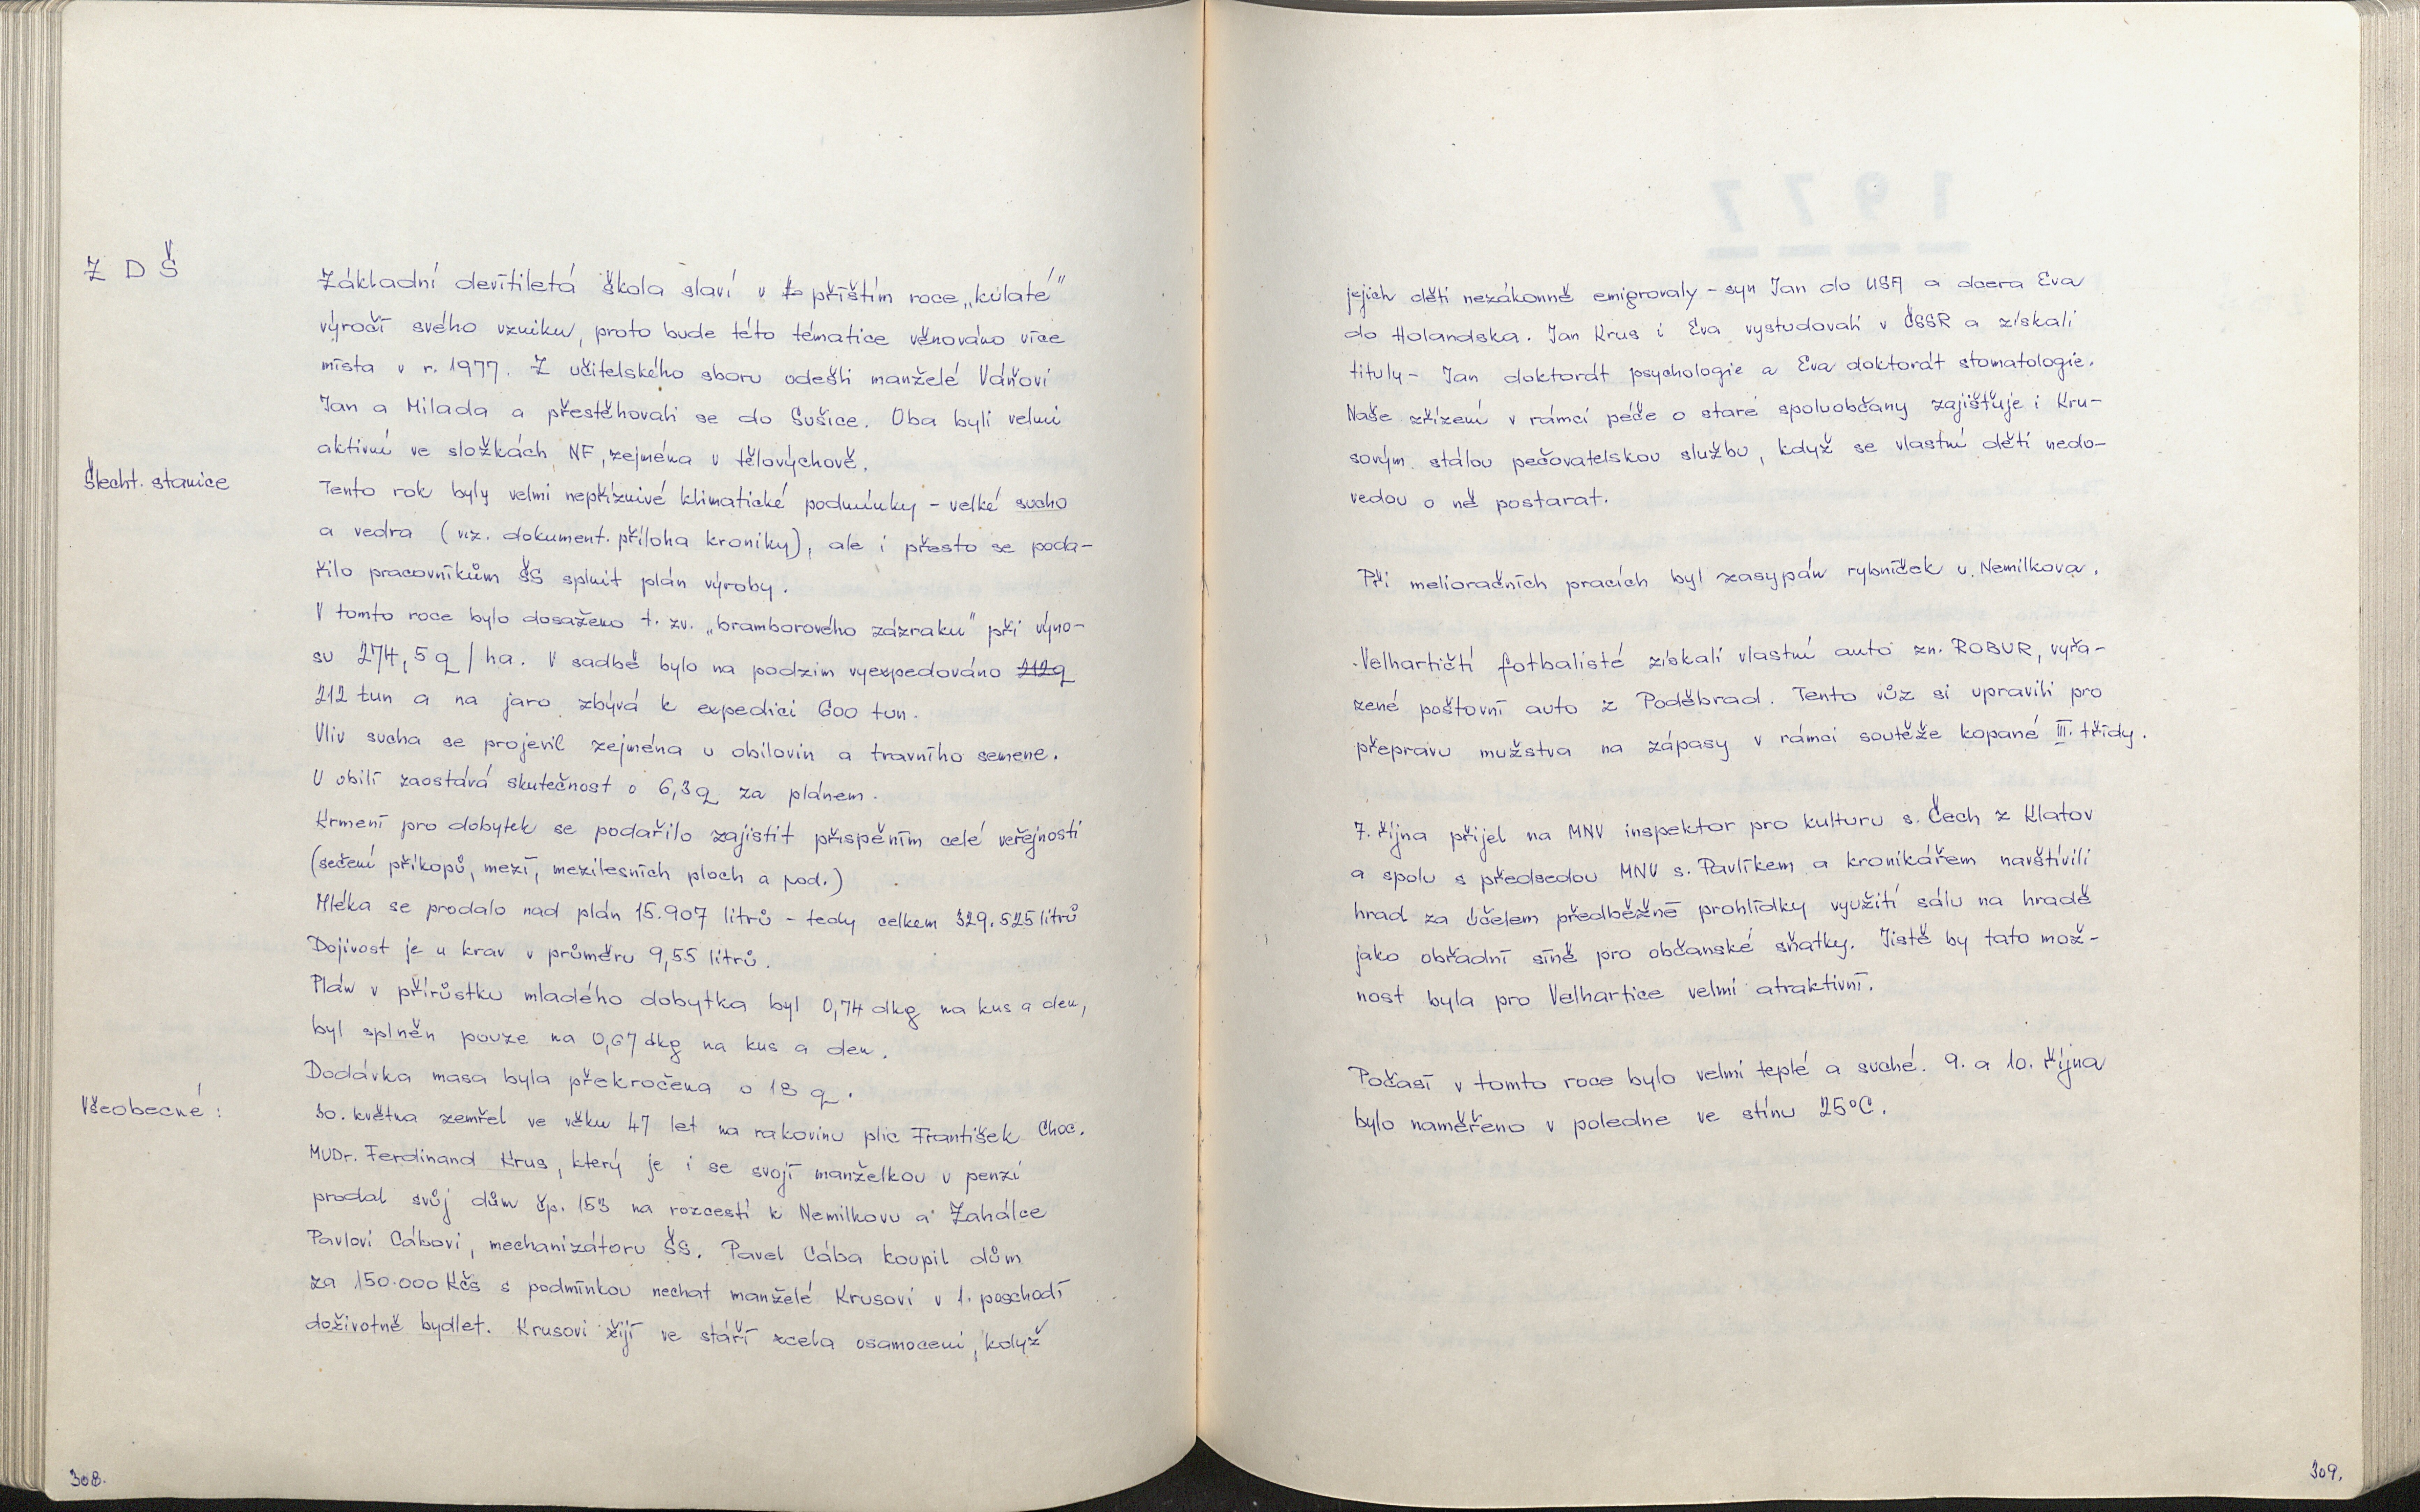 Z D Š
Základní devítiletá škola slaví v příštím roce „kulaté"
výročí svého vzniku, proto bude této tématice věnováno více
místa v r. 1977. Z učitelského sboru odešli manželé Váňovi
Jan a Milada a přestěhovali se do Sušice. Oba byli velmi
aktivní ve složkách NF, zejména v tělovýchově.
Šlecht. stanice
Tento rok byly velmi nepříznivé klimatické podmínky - velké sucho
a vedra (viz. dokument. příloha kroniky), ale i přesto se poda-
řilo pracovníkům ŠS splnit plán výroby.
V tomto roce bylo dosaženo t. zv. „bramborového zázraku" při výno-
su 274,5 q / ha. V sadbě bylo na podzim vyexpedováno 212q
212 tun a na jaro zbývá k expedici 600 tun.
Vliv sucha se projevil zejména u obilovin a travního semene.
U obilí zaostává skutečnost o 6,3 q za plánem.
Krmení pro dobytek se podařilo zajistit přispěním celé veřejnosti
(sečení příkopů, mezí, mezilesních ploch a pod.)
Mléka se prodalo nad plán 15.907 litrů - tedy celkem 329.525 litrů
Dojivost je u krav v průměru 9,55 litrů.
Plán v přírůstku mladého dobytka byl 0,74 dkg na kus a den,
byl splněn pouze na 0,67 dkg na kus a den.
Dodávka masa byla překročena o 13 q.
Všeobecné :
30. května zemřel ve věku 47 let na rakovinu plic František Choc.
MUDr. Ferdinand Krus, který je i se svojí manželkou v penzi
prodal svůj dům čp. 153 na rozcestí k Nemilkovu a Zahálce
Pavlovi Cábovi, mechanizátoru ŠS. Pavel Cába koupil dům
za 150.000 Kčs s podmínkou nechat manželé Krusovi v 1. poschodí
doživotně bydlet. Krusovi žijí ve stáří zcela osamoceni, když
308.
jejich děti nezákonně emigrovaly - syn Jan do USA a dcera Eva
do Holandska. Jan Krus i Eva vystudovali v ČSSR a získali
tituly - Jan doktorát psychologie a Eva doktorát stomatologie.
Naše zřízení v rámci péče o staré spoluobčany zajišťuje i Kru-
sovým stálou pečovatelskou službu, když se vlastní děti nedo-
vedou o ně postarat.
Při melioračních pracích byl zasypán rybníček u Nemilkova.
Velhartičtí fotbalisté získali vlastní auto zn. ROBUR, vyřa-
zené poštovní auto z Poděbrad. Tento vůz si upravili pro
přepravu mužstva na zápasy v rámci soutěže kopané III. třídy.
7. října přijel na MNV inspektor pro kulturu s. Čech z Klatov
a spolu s předsedou MNV s. Pavlíkem a kronikářem navštívili
hrad za účelem předběžné prohlídky využití sálu na hradě
jako obřadní síně pro občanské sňatky. Jistě by tato mož-
nost byla pro Velhartice velmi atraktivní.
Počasí v tomto roce bylo velmi teplé a suché. 9. a 10. října
bylo naměřeno v poledne ve stínu 25°C.
309.